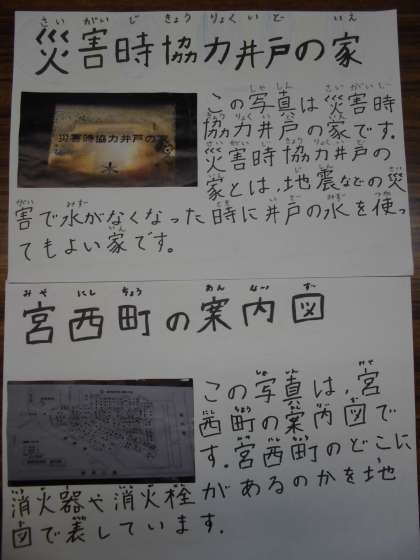 災害時協力井戸の家
さいがいじきょうりょくいどいえ
災害時協力井戸の家
水
この写真は災害時
協力井戸の家です。
災害時協力井戸の
家とは、地震などの災
害で水がなくなった時に井戸の水を使っ
てもよい家です。
みやにしちょうあんないず
宮西町の案内図
この写真は、宮
西町の案内図で
す。宮西町のどこに
消火器や消火栓があるのかを地
図で表しています。